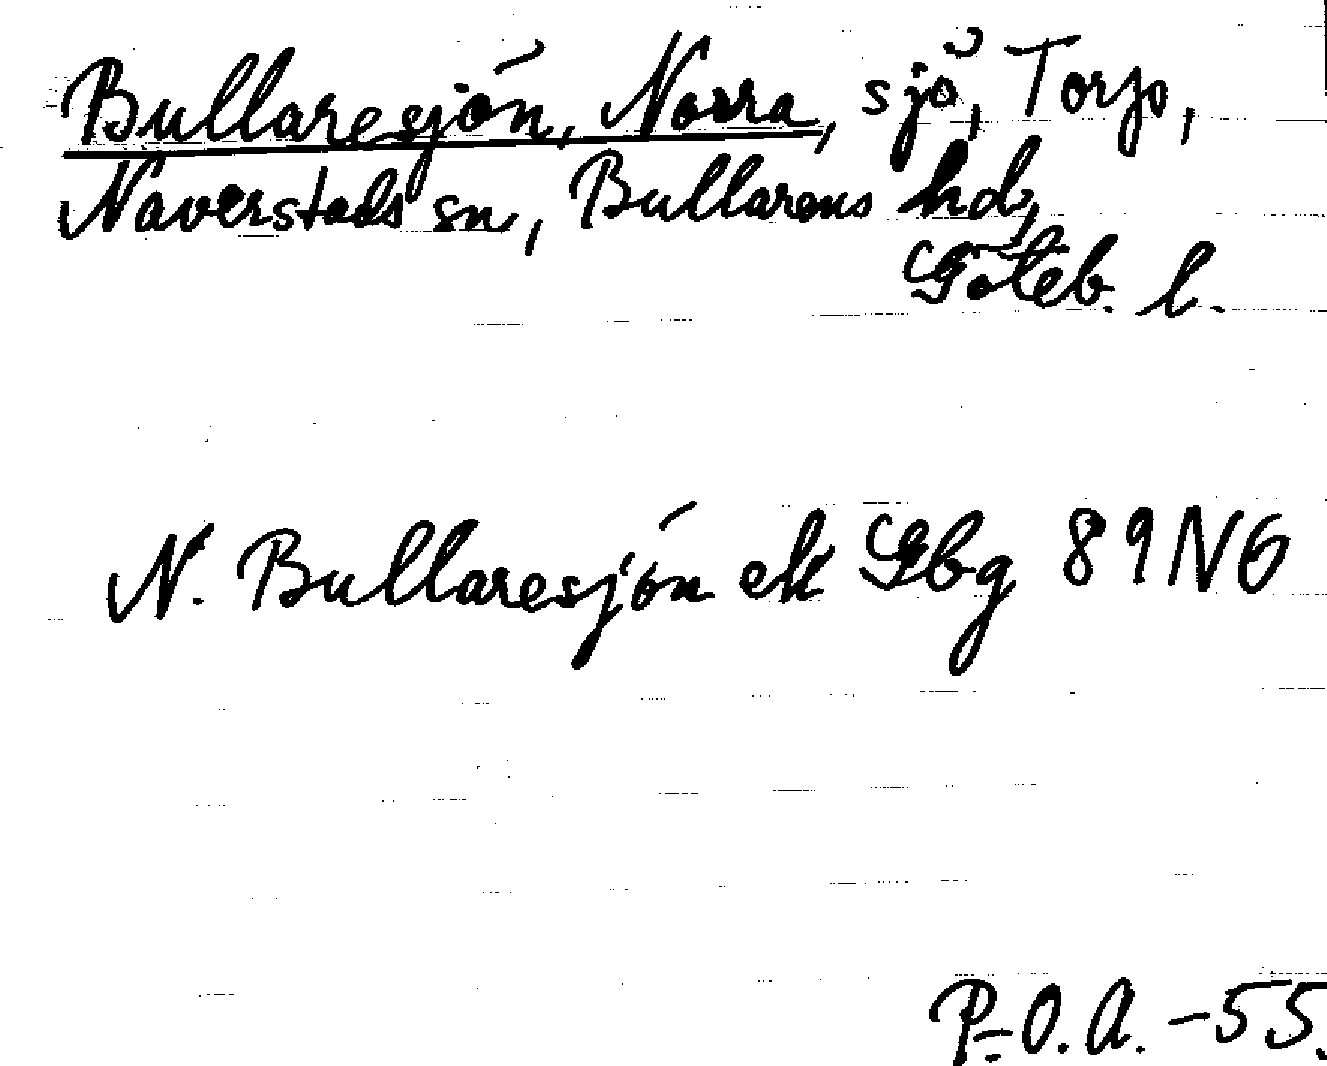 Bullaresjön, Norra, sjö, Torp,
Naverstads sn, Bullarens hd,
Göteb. l.
N. Bullaresjön ek Gbg 89 NO
P.-O. A. -55.